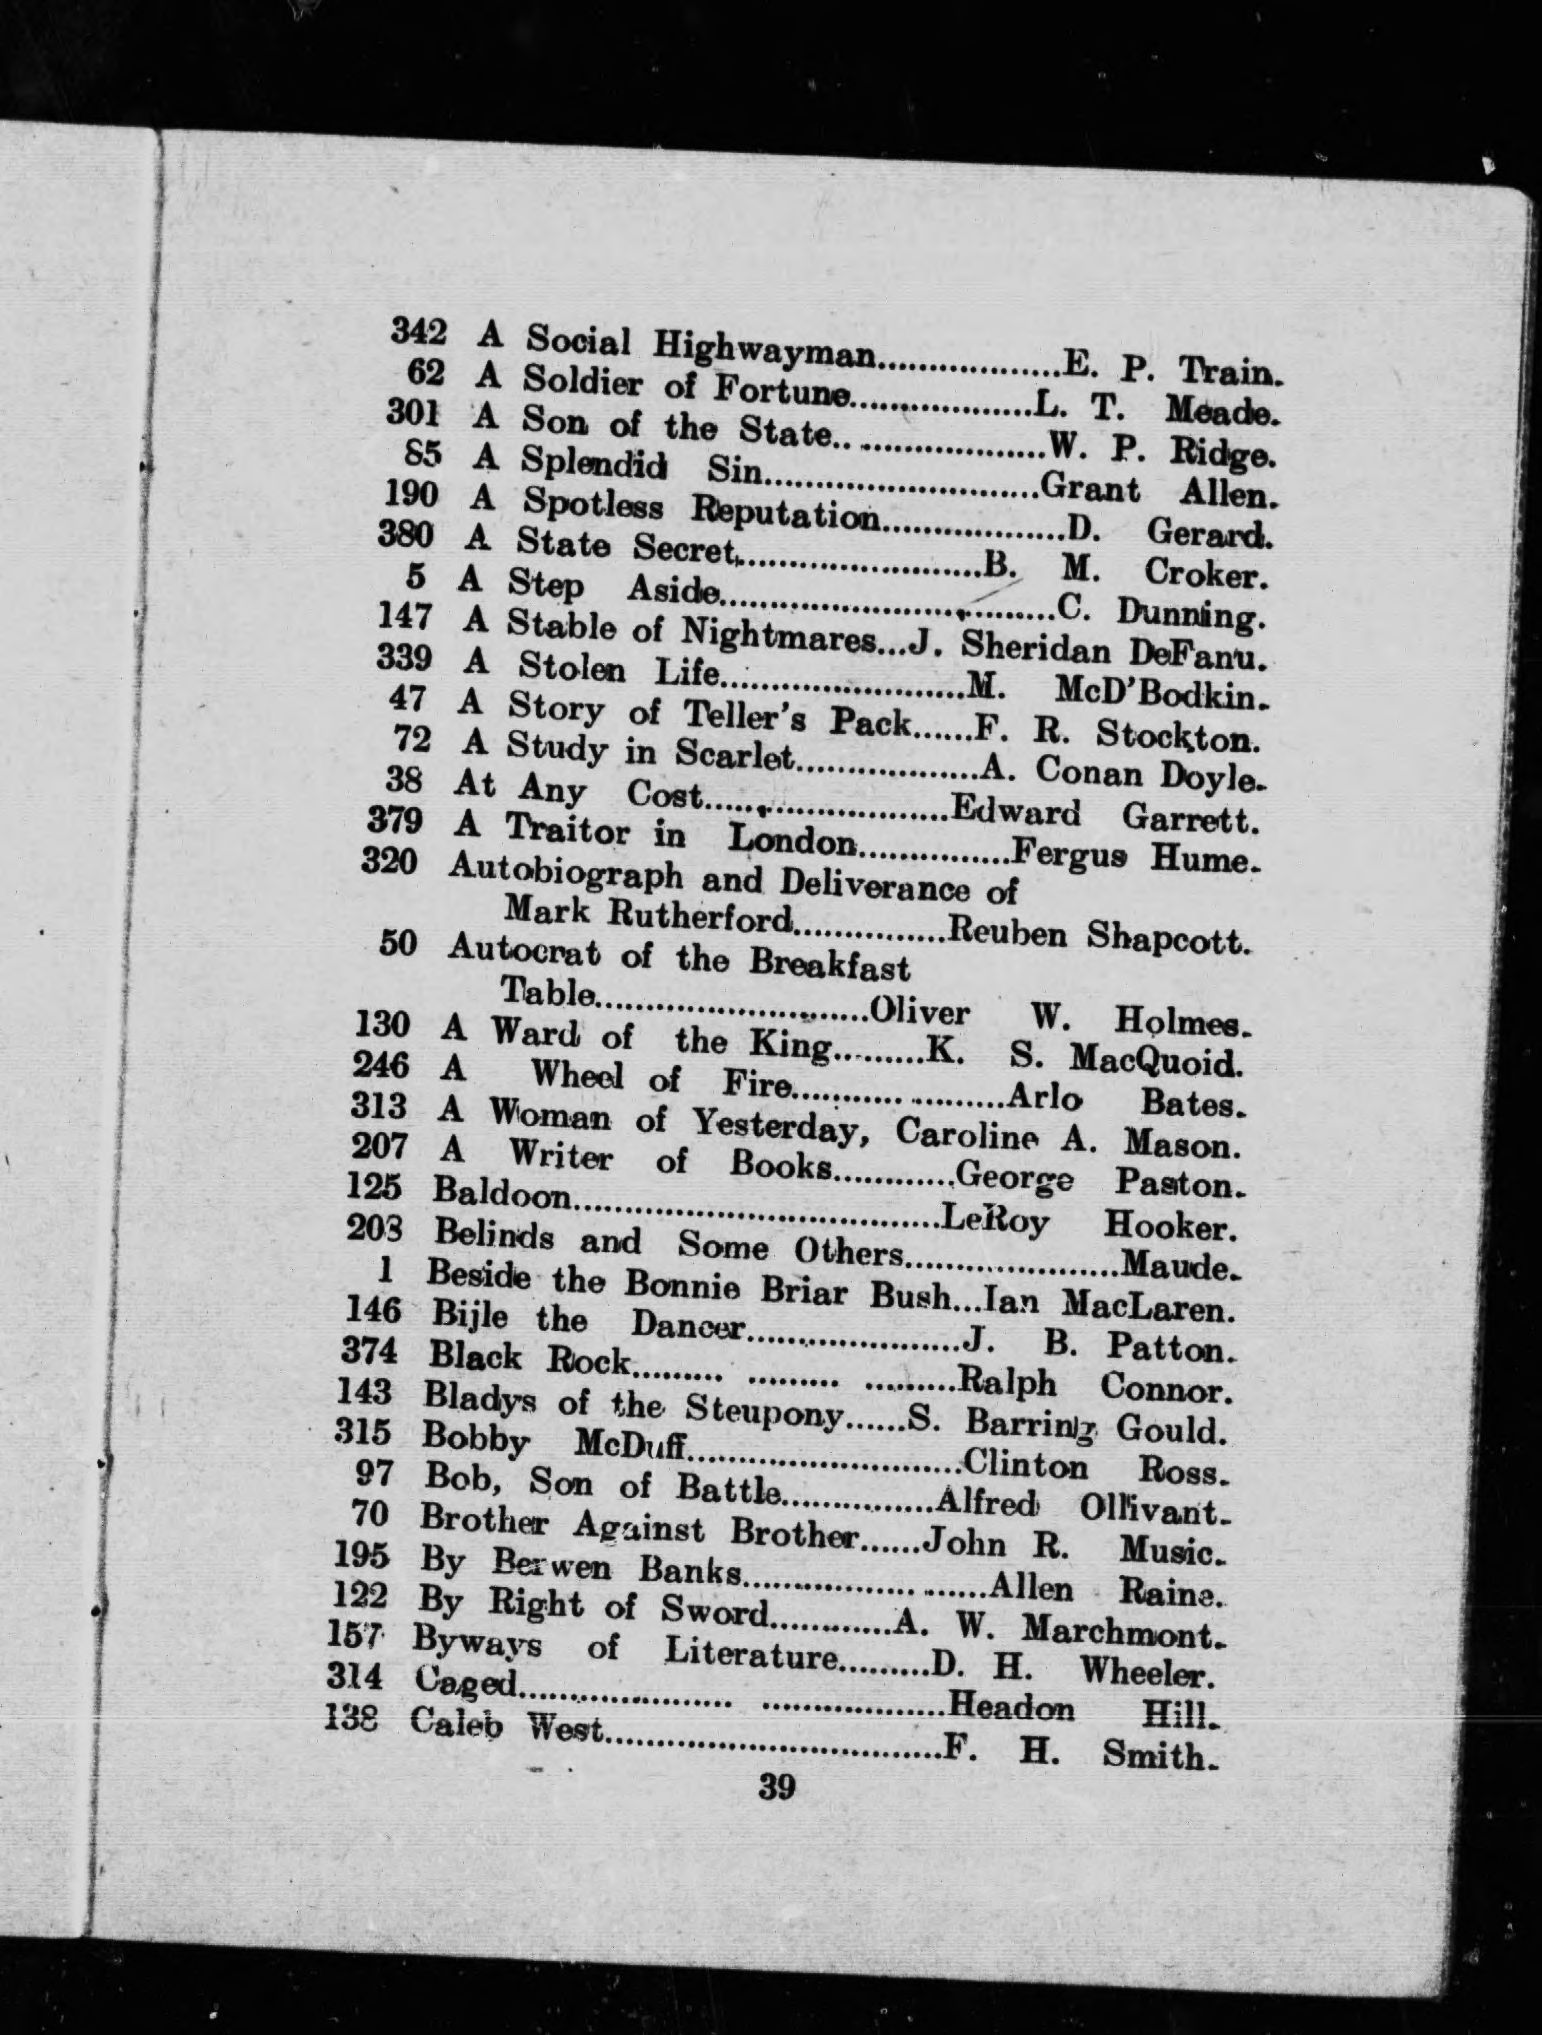 342 A Social Highwayman..................E. P. Train.
62 A Soldier of Fortune..................L. T. Meade.
301 A Son of the State.....................W. P. Ridge.
85 A Splendid Sin...........................Grant Allen.
190 A Spotless Reputation..................D. Gerard.
380 A State Secret.........................B. M. Croker.
5 A Step Aside.................................C. Dunning.
147 A Stable of Nightmares...J. Sheridan DeFanu.
339 A Stolen Life........................M. McD'Bodkin.
47 A Story of Teller's Pack......F. R. Stockton.
72 A Study in Scarlet..................A. Conan Doyle.
38 At Any Cost........................Edward Garrett.
379 A Traitor in London...............Fergus Hume.
320 Autobiograph and Deliverance of
Mark Rutherford...............Reuben Shapcott.
50 Autocrat of the Breakfast
Table...........................Oliver W. Holmes.
130 A Ward of the King.........K. S. MacQuoid.
246 A Wheel of Fire.....................Arlo Bates.
313 A Woman of Yesterday, Caroline A. Mason.
207 A Writer of Books............George Paston.
125 Baldoon....................................LeRoy Hooker.
203 Belinds and Some Others.....................Maude.
1 Beside the Bonnie Briar Bush...Ian MacLaren.
146 Bijle the Dancer.....................J. B. Patton.
374 Black Rock......... ......... .........Ralph Connor.
143 Bladys of the Steupony......S. Barring Gould.
315 Bobby McDuff...........................Clinton Ross.
97 Bob, Son of Battle...............Alfred Ollivant.
70 Brother Against Brother......John R. Music.
195 By Berwen Banks........................Allen Raine.
122 By Right of Sword............A. W. Marchmont.
157 Byways of Literature.........D. H. Wheeler.
314 Caged..................... ..................Headon Hill.
138 Caleb West.................................F. H. Smith.
39